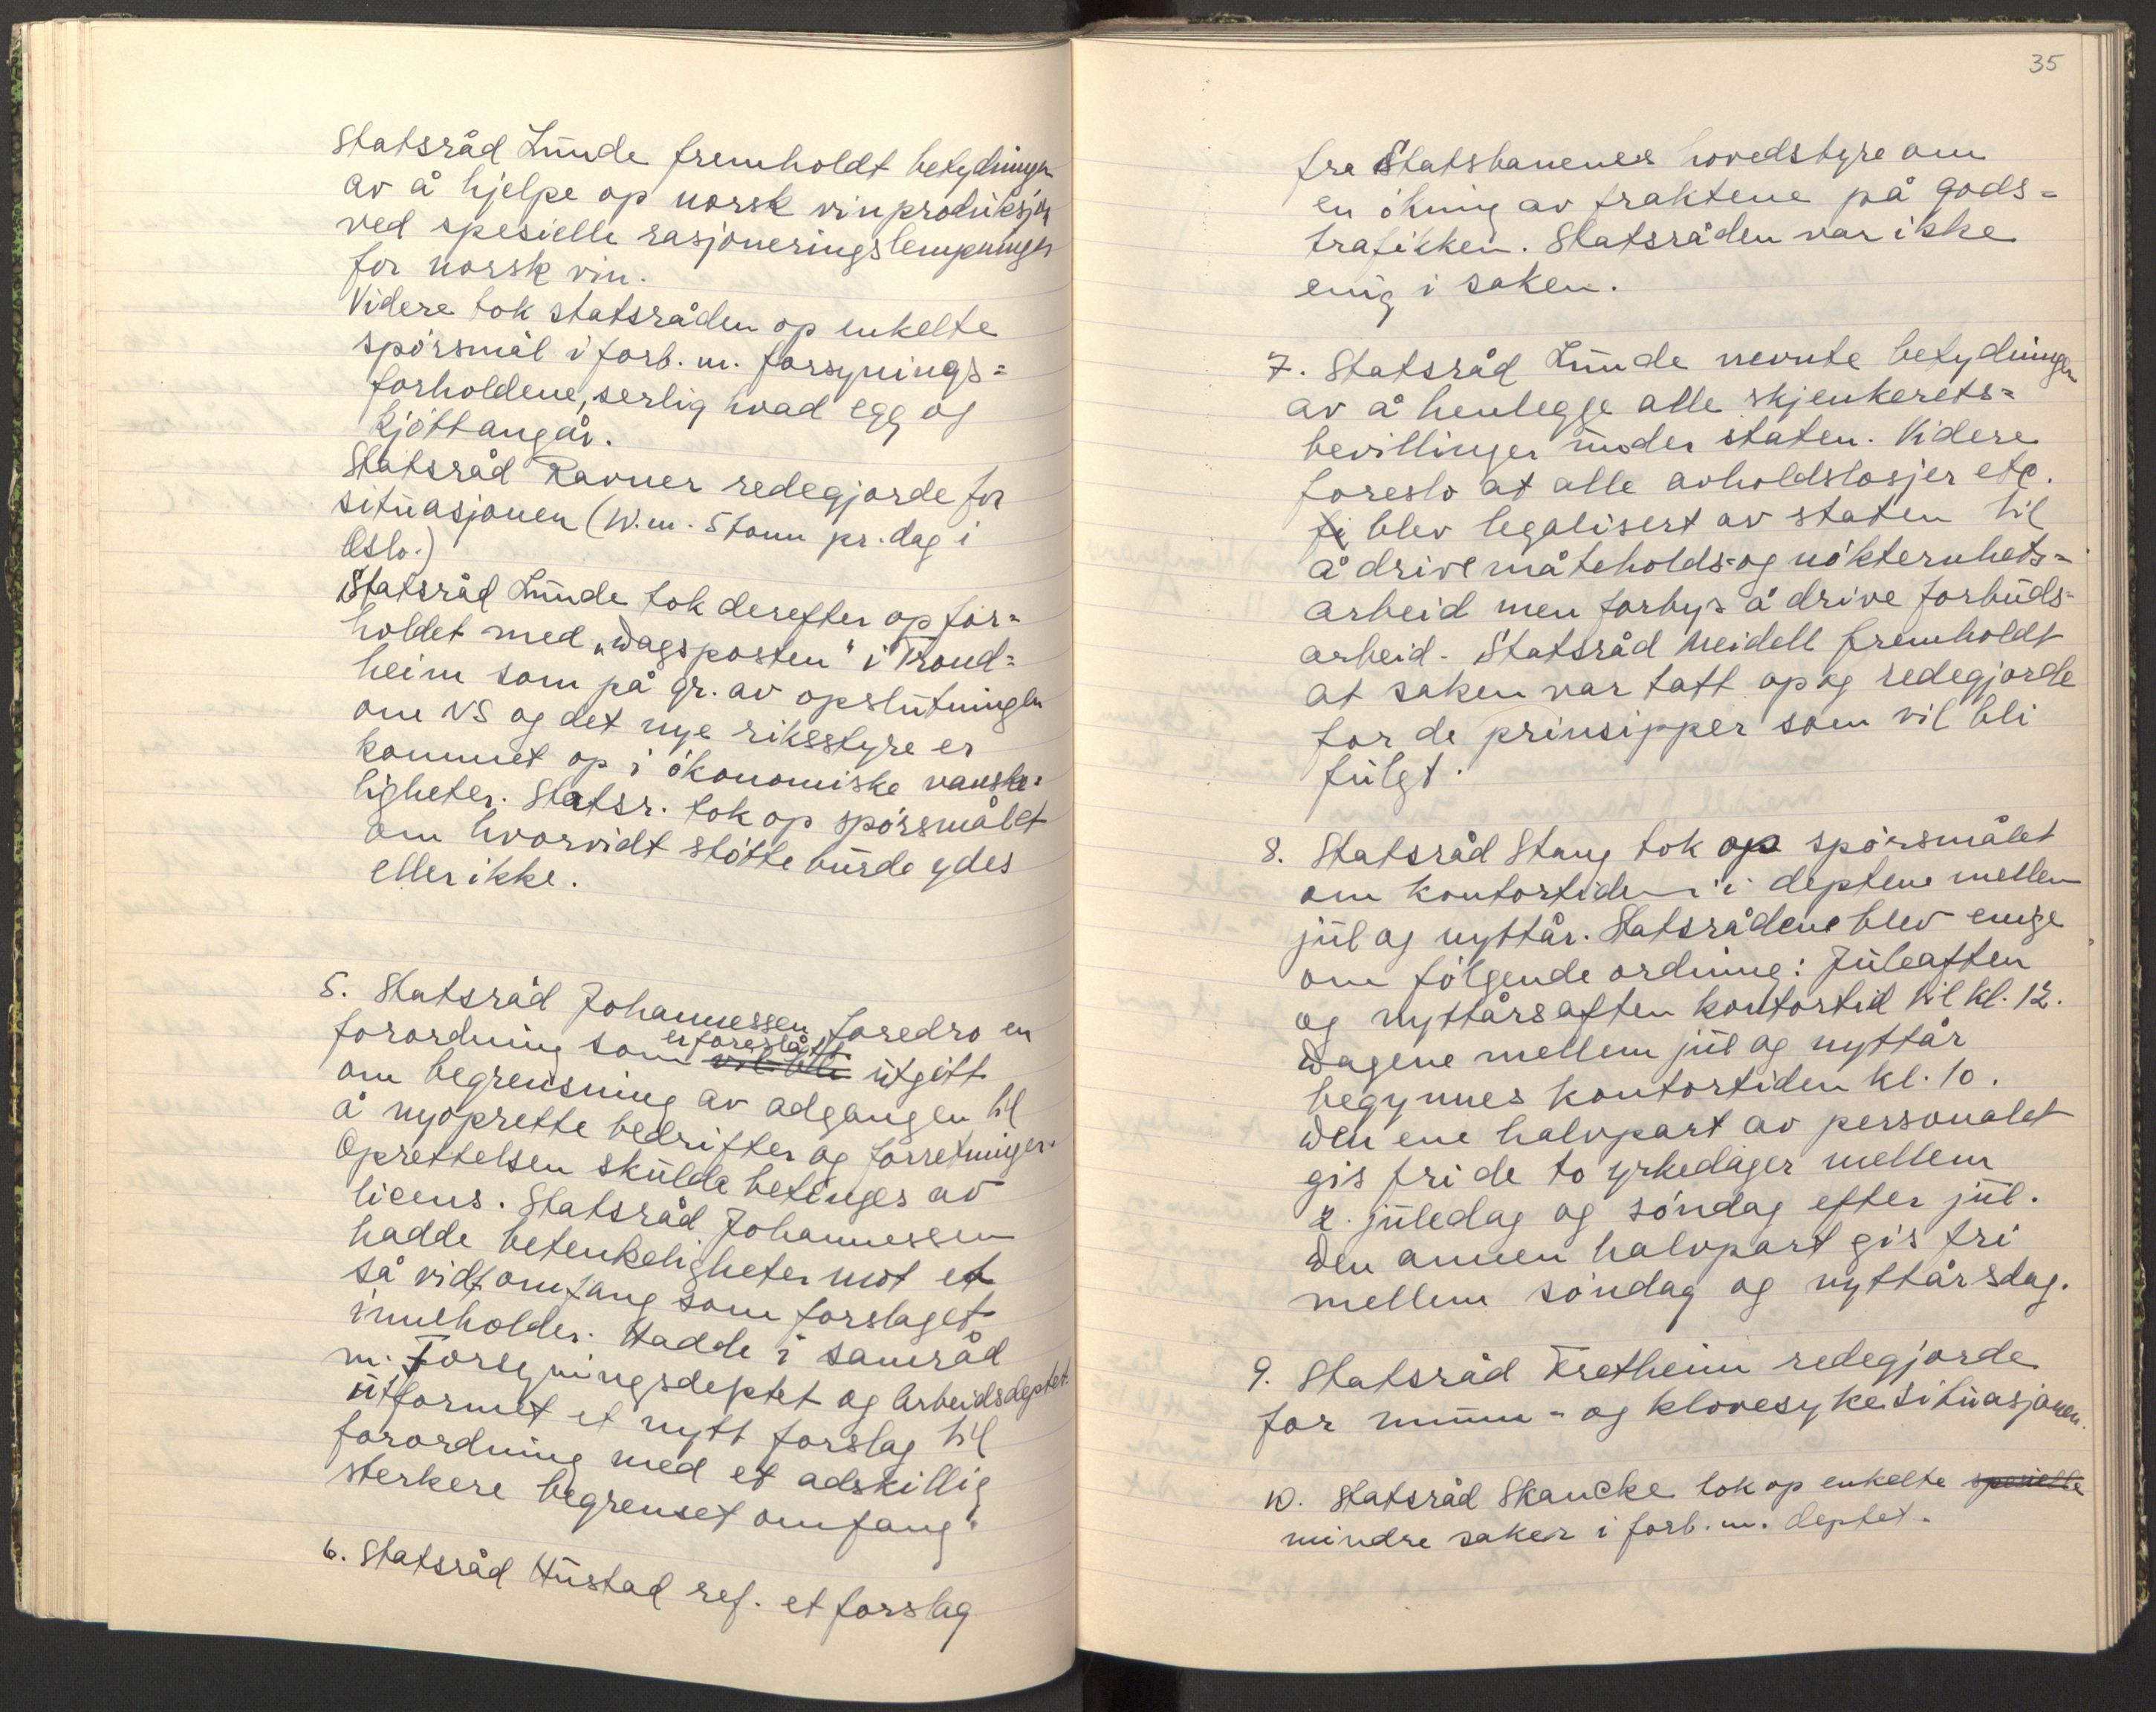 Statsråd Lunde fremholdt betydningen
av å hjelpe op norsk vinproduksjon
ved spesielle rasjoneringslempninger
for norsk vin.
Videre tok statsråden op enkelte
spörsmål i forb. m. forsynings=
forholdene, serlig hvad egg og
kjött angår.
Statsråd Ravner redegjorde for
situasjonen (W.m. 5 tonn pr. dag i
Oslo.)
Statsråd Lunde tok derefter op for=
holdet med „Dagsposten" i Trond=
heim som på gr. av opslutningen
om NS og det nye riksstyre er
kommet op i ökonomiske vanske=
ligheter. Statsr. tok op spörsmålet
om hvorvidt stötte burde ydes
eller ikke.
5. Statsråd Johannessen foredro en
forordning som er foreslått vil bli utgitt
om begrensning av adgangen til
å nyoprette bedrifter og forretninger.
Oprettelsen skulde betinges av
licens. Statsråd Johannessen
hadde betenkeligheter mot et
så vidt omfang som forslaget
inneholder. Hadde i samråd
m. Forsyningsdeptet og Arbeidsdeptet
utformet et nytt forslag til
forordning med et adskillig
sterkere begrenset omfang.
6. Statsråd Hustad ref. et forslag
35
fra Statsbanenes hovedstyre om
en ökning av fraktene på gods=
trafikken. Statsråden var ikke
enig i saken.
7. Statsråd Lunde nevnte betydningen
av å henlegge alle skjenkerets=
bevillinger under staten. Videre
foreslo at alle avholdslosjer etc.
blev legalisert av staten til
å drive måteholds= og nökternhets=
arbeid men forbys å drive forbuds=
arbeid. Statsråd Meidell fremholdt
at saken var tatt op og redegjorde
for de prinsipper som vil bli
fulgt.
8. Statsråd Stang tok op spörsmålet
om kontortiden i deptene mellem
jul og nyttår. Statsrådene blev enige
om fölgende ordning: Juleaften
og nyttårsaften kontortid til kl. 12.
Dagene mellem jul og nyttår
begynnes kontortiden kl. 10.
Den ene halvpart av personalet
gis fri de to yrkedager mellem
2. juledag og söndag efter jul.
Den annen halvpart gis fri
mellem söndag og nyttårsdag.
9. Statsråd Fretheim redegjorde
for munn= og klovesykesituasjonen.
10. Statsråd Skancke tok op enkelte spesielle
mindre saker i forb. m. deptet.